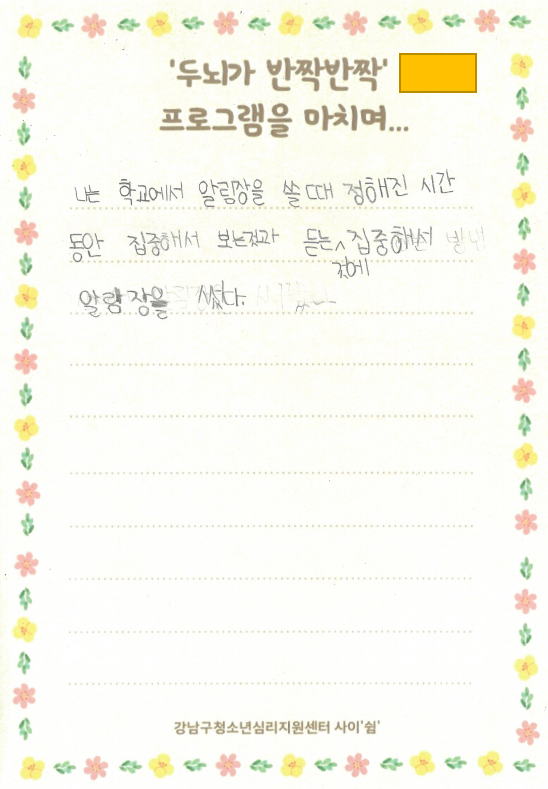 '두뇌가 반짝반짝'
프로그램을 마치며...
나는 학교에서 알림장을 쓸 때 정해진 시간
동안 집중해서 보는것과 듣는 것에 집중해서
알림장을 썼다.
강남구청소년심리지원센터 사이'쉼'